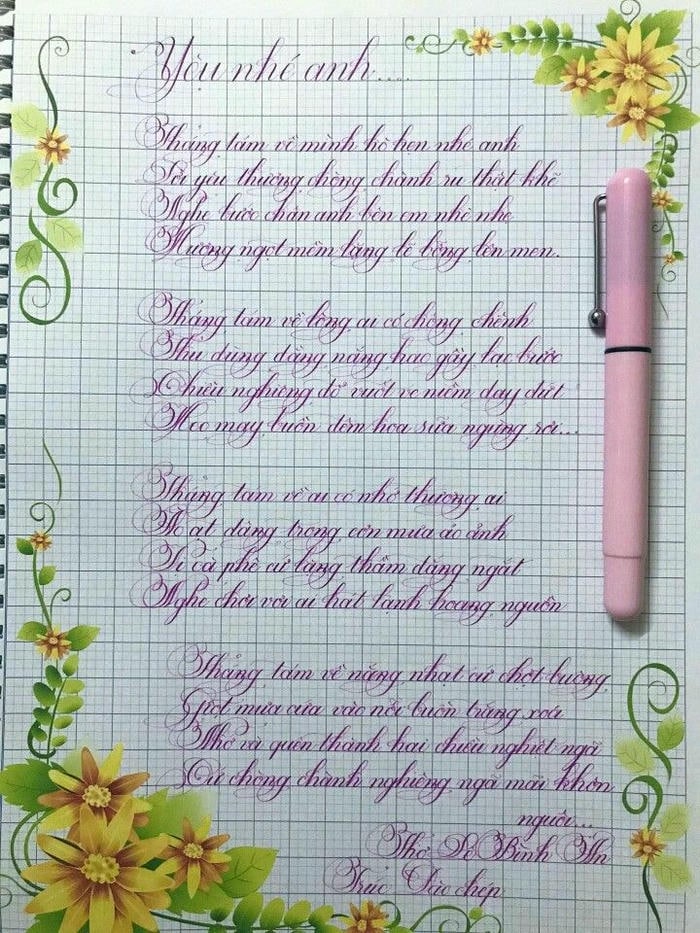 Yêu nhé anh....
Tháng tám về mình hò hẹn nhé anh
Lời yêu thương chòng chành ru thật khẽ
Nghe bước chân anh bên em nhè nhẹ
Hương ngọt mềm lặng lẽ bỗng lên men.
Tháng tám về lòng ai có chông chênh
Thu dùng dằng nắng hao gầy lạc bước
Chiều nghiêng đổ vuốt ve niềm day dứt
Heo may buồn đêm hoa sữa ngừng rơi...
Tháng tám về ai có nhớ thương ai
Mà dáng trong cơn mưa ảo ảnh
Li cà phê cứ lặng thầm đắng ngắt
Nghe chơi vơi ai hát lạnh hoang nguồn
Tháng tám về nắng nhạt cứ chợt buông
Giọt mưa cứa vào nỗi buồn trắng xoá
Nhớ và quên thành hai chiều nghiệt ngã
Cứ chòng chành nghiêng ngả mãi khôn
nguôi...
Thơ Bình An
Trúc Đào chép